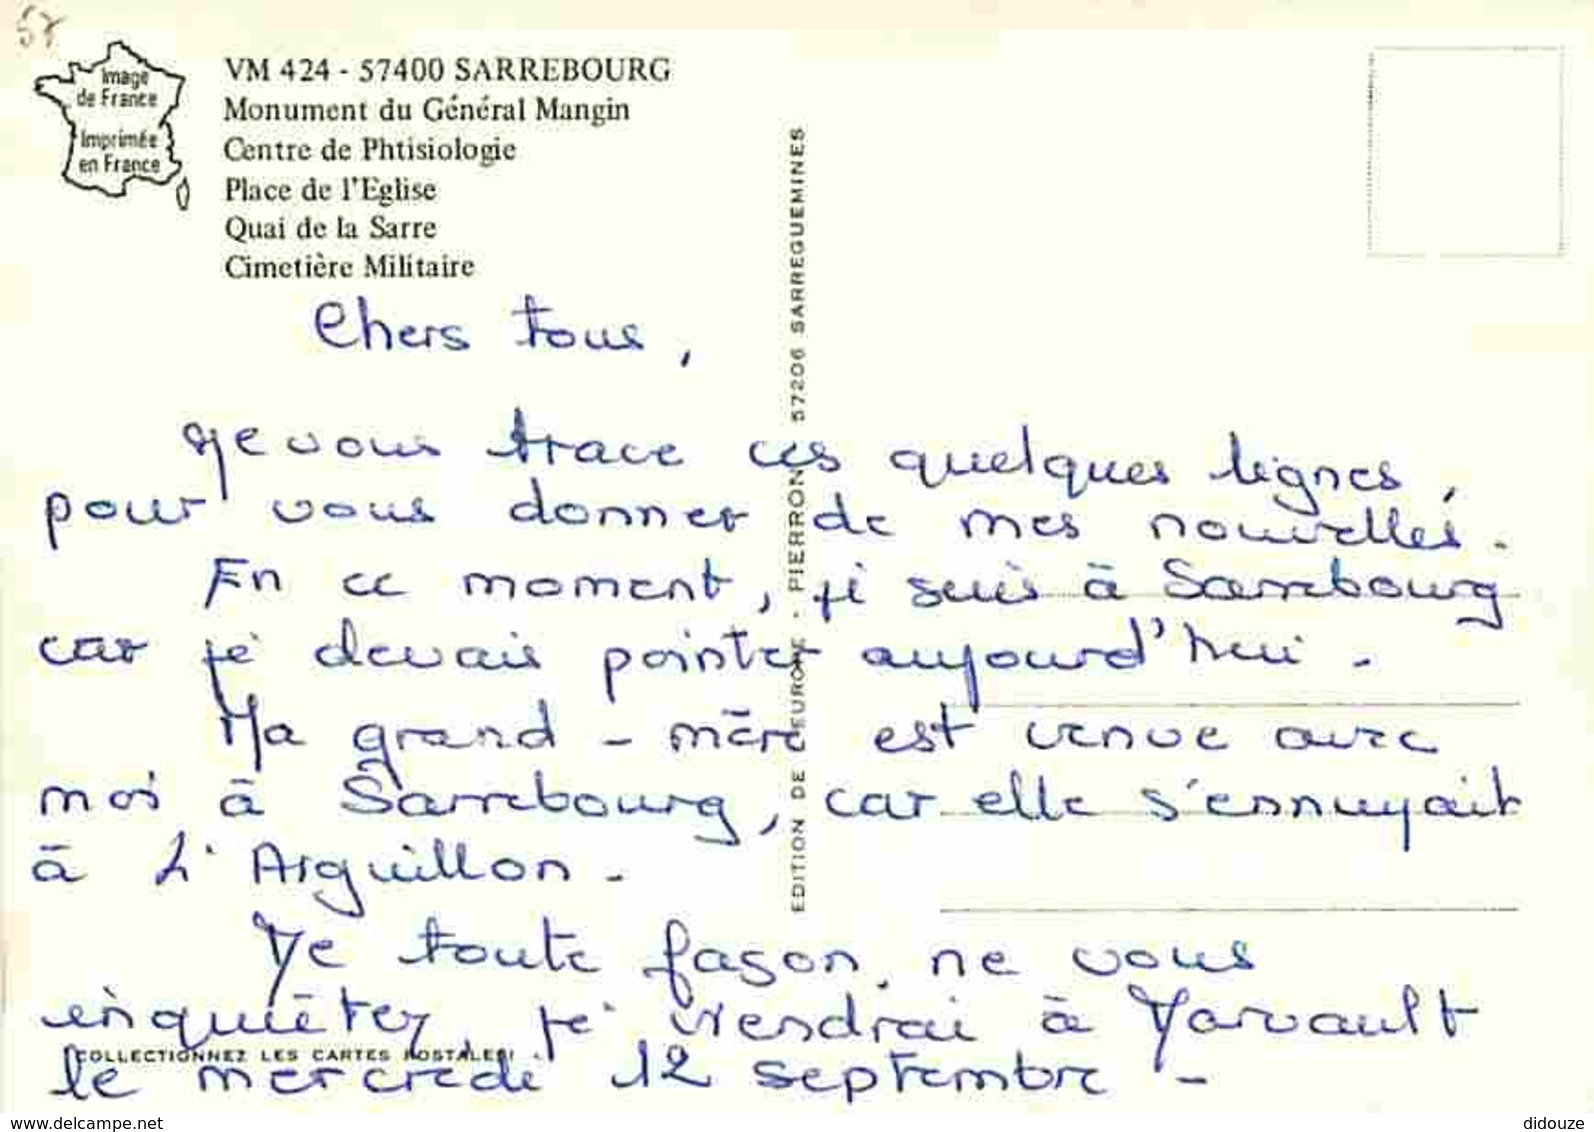 57
Image
de France
Imprimée
en France
VM 424 - 57400 SARREBOURG
Monument du Général Mangin
Centre de Phtisiologie
Place de l'Eglise
Quai de la Sarre
Cimetière Militaire
EDITION DE L'EUROPE - PIERRON 57206 SARREGUEMINES
Chers tous,
Je vous trace ces quelques lignes,
pour vous donner de mes nouvelles.
En ce moment, je suis à Sarrebourg
car je devais pointer aujourd'hui.
Ma grand-mère est venue avec
moi à Sarrebourg, car elle s'ennuyait
à L'Aiguillon.
De toute façon, ne vous
inquiétez, je viendrai à
le mercredi 12 septembre -
COLLECTIONNEZ LES CARTES POSTALES!
www.delcampe.net
didouze